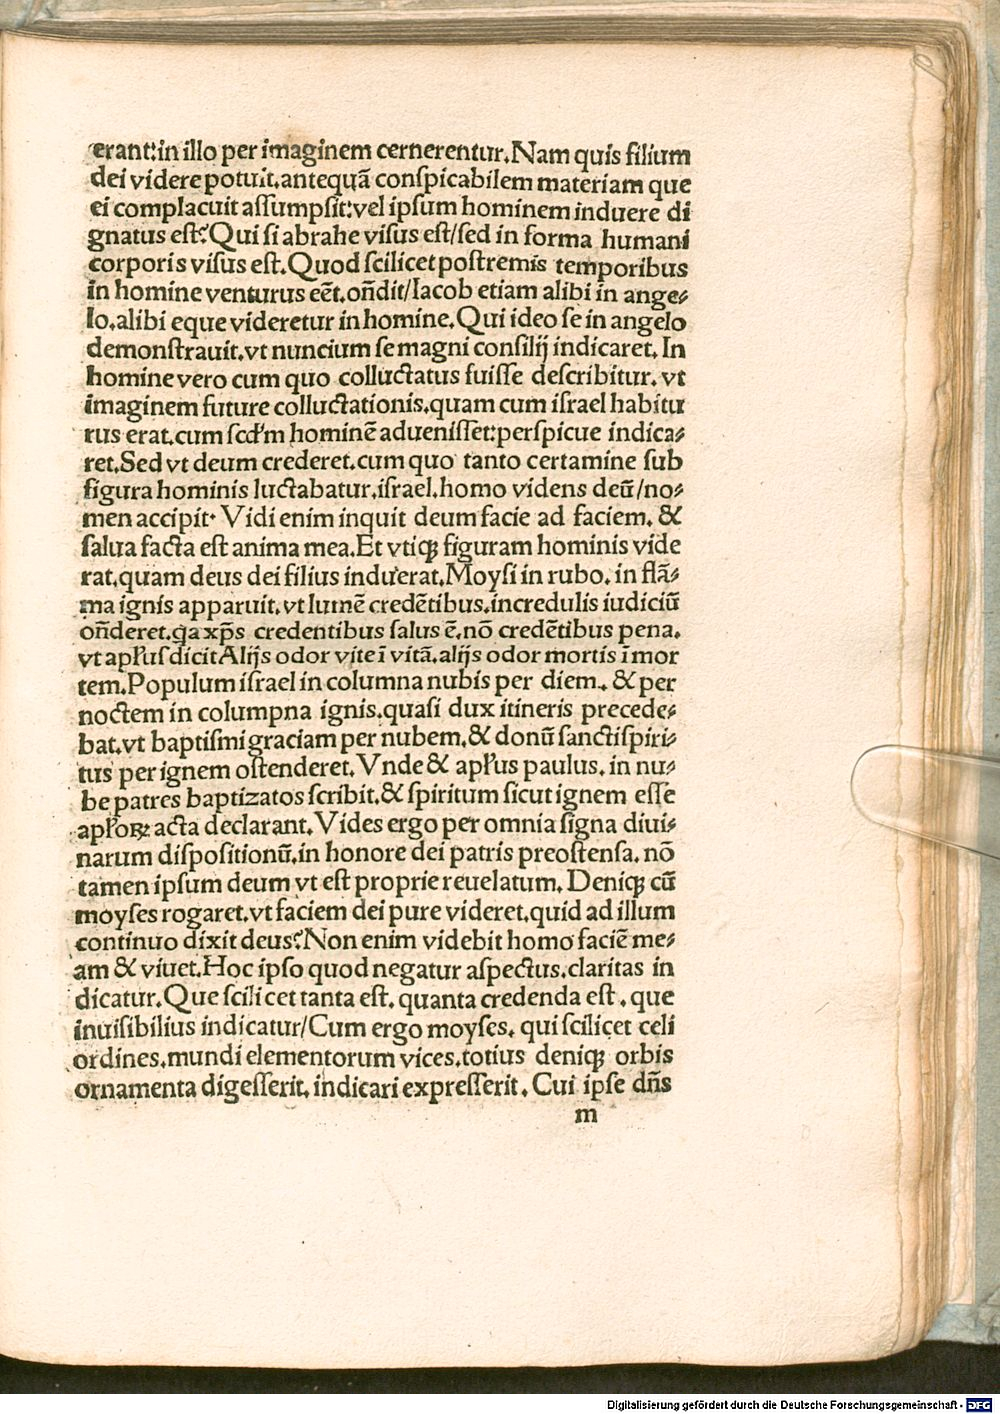 erant:in illo per imaginem cernerentur.Nam quis filium
dei videre potuit.antequā conſpicabilem materiam que
ei complacuit aſſumpſit:vel ipſum hominem induere di
gnatus eſt?Qui ſi abrahe viſus eſt/ſed in forma humani
corporis viſus eſt.Quod ſcilicet poſtremis temporibus
in homine venturus eēt.on̄dit/Iacob etiam alibi in ange⸗
lo.alibi eque videretur in homine.Qui ideo ſe in angelo
demonſtrauit.vt nuncium ſe magni conſilij indicaret. In
homine vero cum quo colluctatus fuiſſe deſcribitur. vt
imaginem future colluctationis.quam cum iſrael habitu
rus erat.cum ſcd'm hominē adueniſſet:perſpicue indica⸗
ret.Sed vt deum crederet.cum quo tanto certamine ſub
figura hominis luctabatur.iſrael.homo videns deū/no⸗
men accipit. Vidi enim inquit deum facie ad faciem. &
ſalua facta eſt anima mea.Et vtiqꝫ figuram hominis vide
rat.quam deus dei filius induerat.Moyſi in rubo. in flā⸗
ma ignis apparuit. vt lumē credētibus.incredulis iudiciū
on̄deret.q̄a xp̄s credentibus ſalus ē.nō credētibus pena.
vt apl'uſ dicit Alijs odor vite ī vitā.alijs odor mortis ī mor
tem.Populum iſrael in columna nubis per diem. & per
noctem in columpna ignis.quaſi dux itineris precede⸗
bat.vt baptiſmi graciam per nubem.& donū ſanctiſpiri⸗
tus per ignem oſtenderet. Vnde & apl'us paulus. in nu⸗
be patres baptizatos ſcribit.& ſpiritum ſicut ignem eſſe
apl'oꝝ acta declarant.Vides ergo per omnia ſigna diui⸗
narum diſpoſitionū.in honore dei patris preoſtenſa. nō
tamen ipſum deum vt eſt proprie reuelatum. Deniqꝫ cū
moyſes rogaret.vt faciem dei pure videret.quid ad illum
continuo dixit deus?Non enim videbit homo faciē me⸗
am & viuet.Hoc ipſo quod negatur aſpectus.claritas in
dicatur.Que ſcilicet tanta eſt. quanta credenda eſt. que
inuiſibilius indicatur/Cum ergo moyſes. qui ſcilicet celi
ordines.mundi elementorum vices.totius deniqꝫ orbis
ornamenta digeſſerit. indicari expreſſerit. Cui ipſe dn̄s
m
Digitalisierung gefördert durch die Deutsche Forschungsgemeinschaft - DFG